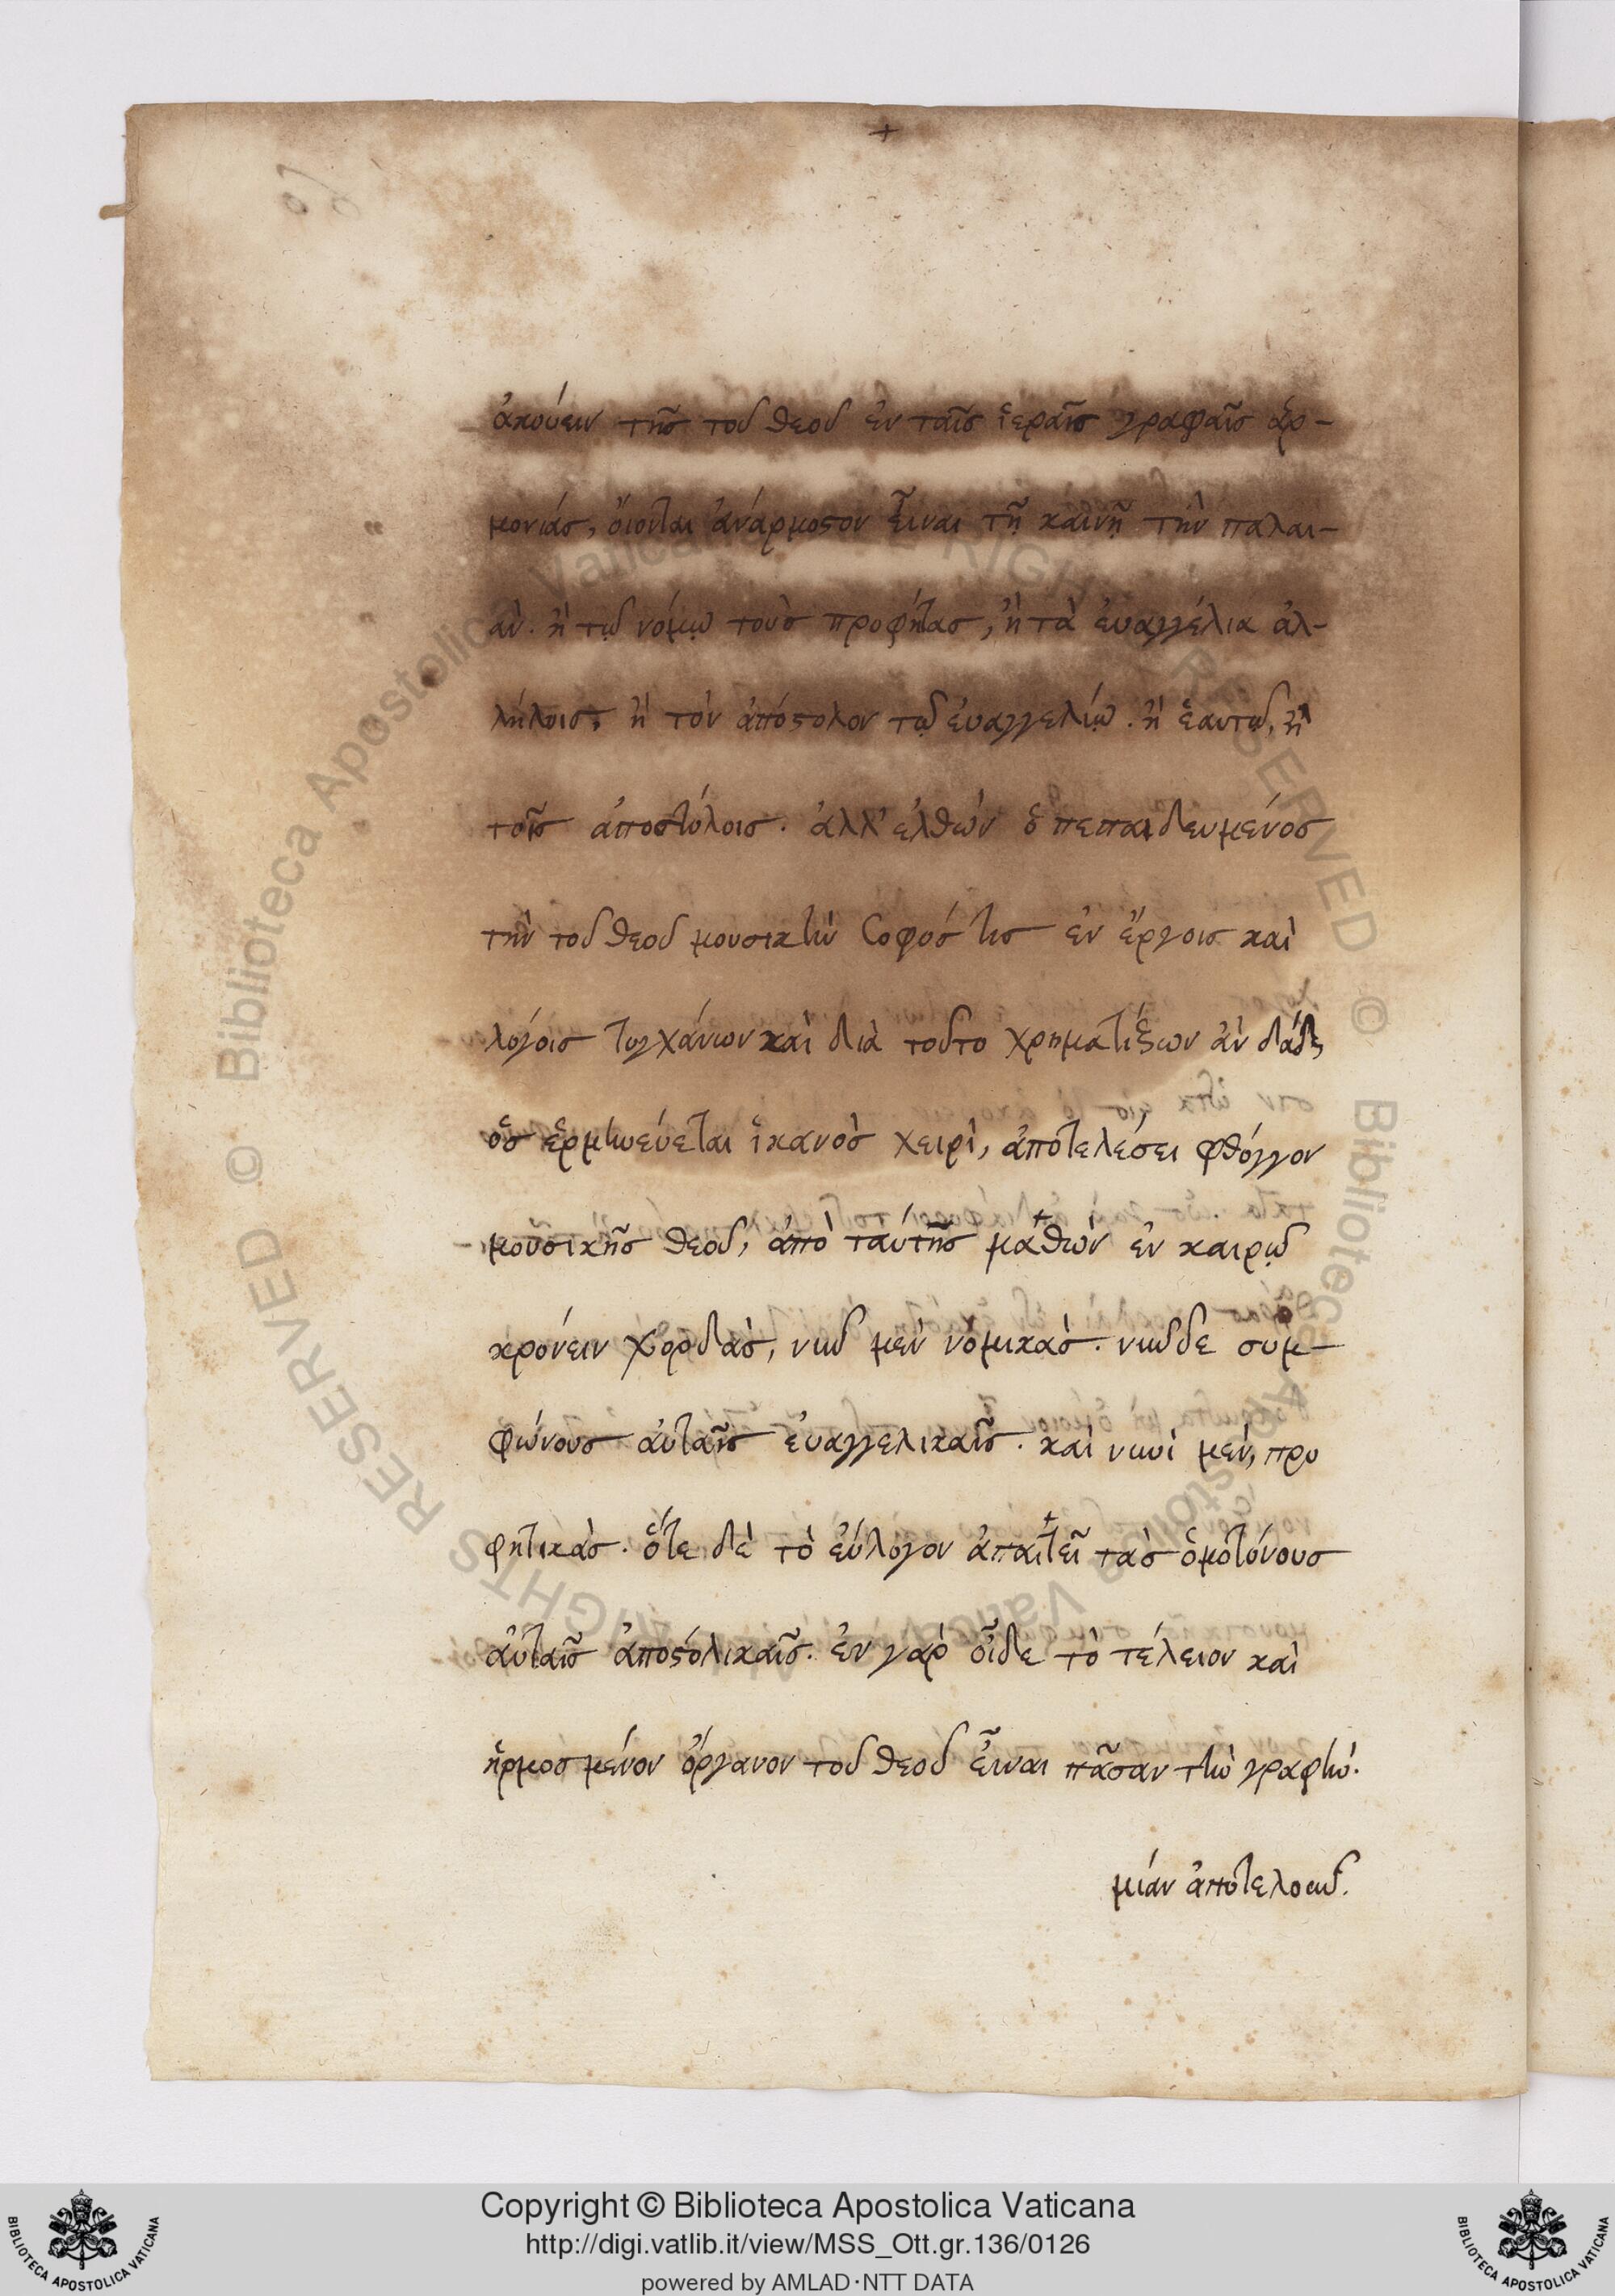 +
ἀκούειν τῆς τοῦ θεοῦ ἐν ταῖς ἱεραῖς γραφαῖς ἁρ-
μονίας, ὄιονται ἀνάρμοστον εἶναι τῇ καινῇ τὴν παλαι-
ὰν. ἢ τῷ νόμῳ τοὺς προφήτας, ἢ τὰ ἐυαγγέλια ἀλ-
λήλοις, ἢ τὸν ἀπόστολον τῷ ἐυαγγελίῳ. ἢ ἑαυτῷ, ἢ
τοῖς ἀποστόλοις. ἀλλ' ἐλθὼν ὁ πεπαιδευμένος
τὴν τοῦ θεοῦ μουσικὴν σοφός τις ἐν ἔργοις καὶ
λόγοις τυγχάνων καὶ διὰ τοῦτο χρηματίξων ἀν δάδ,
ὃς ἑρμηνεύεται ἱκανὸς χειρὶ, ἀποτελέσει φθόγγον
μουσικῆς θεοῦ, ἀπὸ ταύτης μαθὼν ἐν καιρῷ
κρούειν χορδὰς, νῦν μὲν νομικὰς. νῦν δε συμ-
φώνους ἀυταῖς ἐυαγγελικαῖς. καὶ νυνὶ μὲν, προ
φητικὰς. ὅτε δὲ τὸ ἐύλογον ἀπαιτεῖ τὰς ὁμοτόνους
ἀυταῖς ἀποστόλικαῖς. ἐν γὰρ οἶδε τὸ τέλειον καὶ
ἡρμοσμένον ὄργανον τοῦ θεοῦ εἶναι πᾶσαν τὴν γραφὴν.
μίαν ἀποτελοῦν.
Copyright © Biblioteca Apostolica Vaticana
http://digi.vatlib.it/view/MSS_Ott.gr.136/0126
powered by AMLAD·NTT DATA
BIBLIOTECA APOSTOLICA VATICANA
BIBLIOTECA APOSTOLICA VATICANA